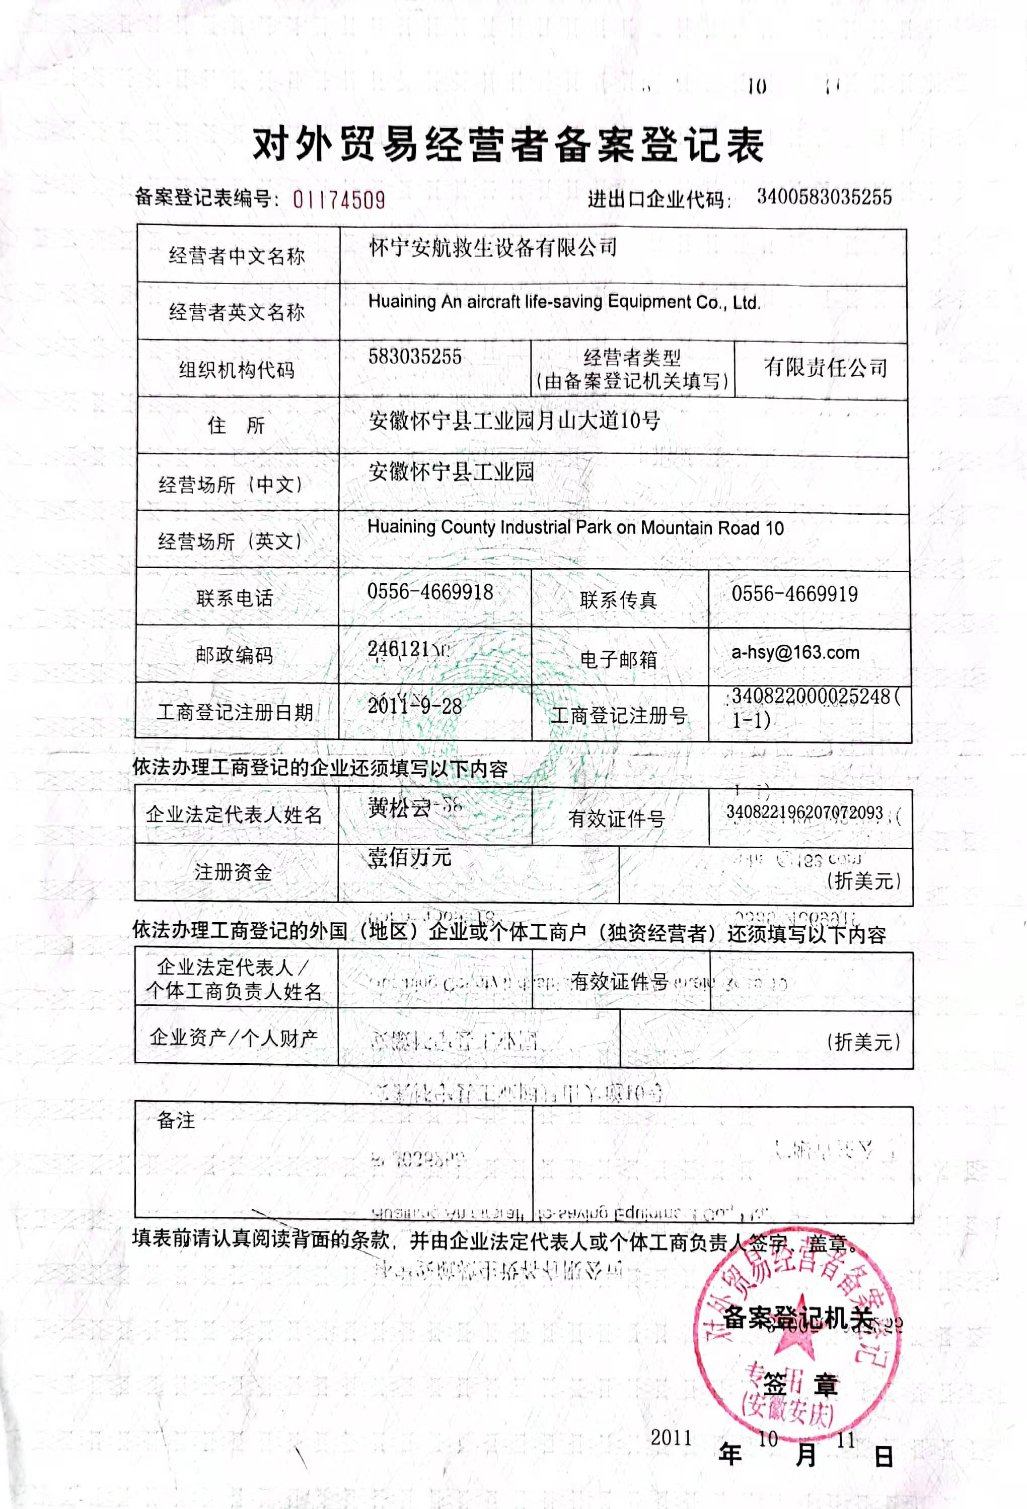 10 11
对外贸易经营者备案登记表
备案登记表编号: 01174509 进出口企业代码: 3400583035255
经营者中文名称 怀宁安航救生设备有限公司
经营者英文名称 Huaining An aircraft life-saving Equipment Co., Ltd.
组织机构代码 583035255 经营者类型 有限责任公司
(由备案登记机关填写)
住 所 安徽怀宁县工业园月山大道10号
经营场所（中文） 安徽怀宁县工业园
经营场所（英文） Huaining County Industrial Park on Mountain Road 10
联系电话 0556-4669918 联系传真 0556-4669919
邮政编码 246121 电子邮箱 a-hsy@163.com
工商登记注册日期 2011-9-28 工商登记注册号 340822000025248(
1-1)
依法办理工商登记的企业还须填写以下内容
企业法定代表人姓名 黄松云 有效证件号 340822196207072093
注册资金 壹佰万元 (折美元)
依法办理工商登记的外国（地区）企业或个体工商户（独资经营者）还须填写以下内容
企业法定代表人/ 有效证件号
个体工商负责人姓名
企业资产/个人财产 (折美元)
备注
填表前请认真阅读背面的条款，并由企业法定代表人或个体工商负责人签字、盖章。
对外贸易经营者备案登记
备案登记机关
专用
签 章
(安徽安庆)
2011 年 10 月 11 日